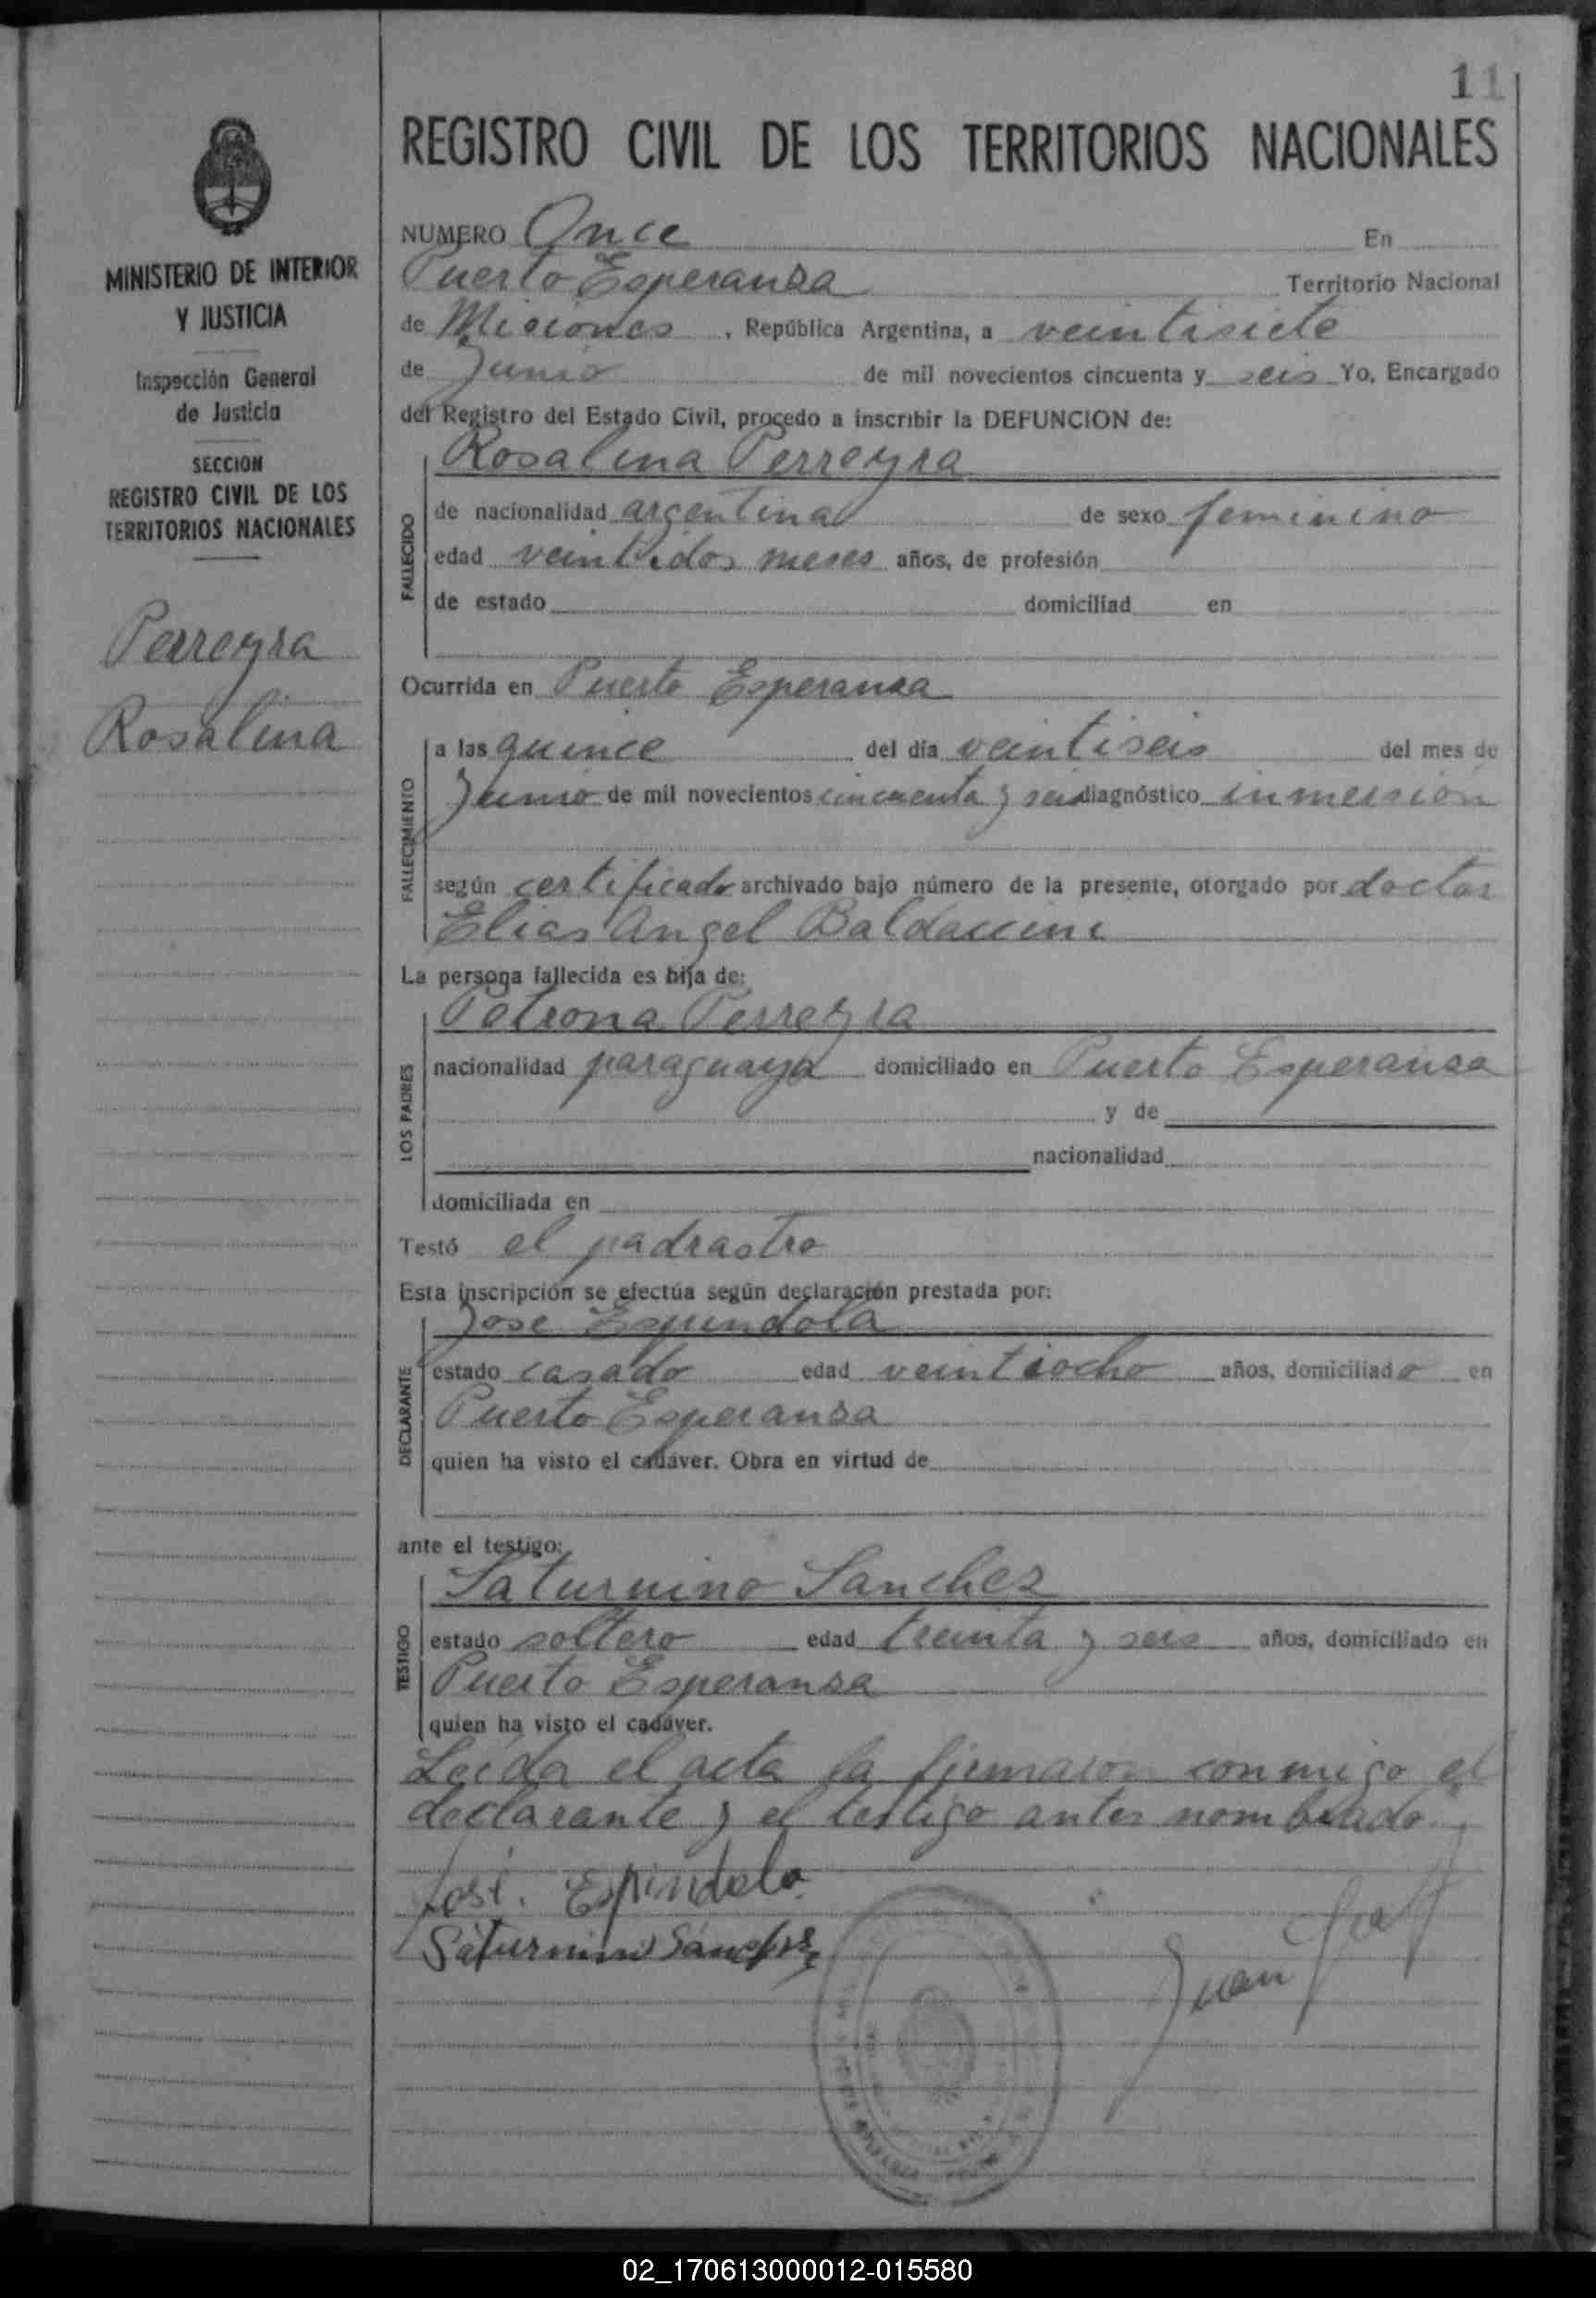 11
REGISTRO CIVIL DE LOS TERRITORIOS NACIONALES
MINISTERIO DE INTERIOR
Y JUSTICIA
Inspección General
de Justicia
SECCION
REGISTRO CIVIL DE LOS
TERRITORIOS NACIONALES
Perreyra
Rosalina
NUMERO Once En
Puerto Esperanza Territorio Nacional
de Misiones, República Argentina, a veintisiete
de Junio de mil novecientos cincuenta y seis Yo, Encargado
del Registro del Estado Civil, procedo a inscribir la DEFUNCION de:
Rosalina Perreyra
FALLECIDO
de nacionalidad argentina de sexo femenino
edad veintidos meses años, de profesión
de estado domiciliad en
Ocurrida en Puerto Esperanza
FALLECIMIENTO
a las quince del día veintiseis del mes de
Junio de mil novecientos cincuenta y seis diagnóstico inmersion
según certificado archivado bajo número de la presente, otorgado por doctor
Elias Angel Baldaccini
La persona fallecida es hija de:
LOS PADRES
Petrona Perreyra
nacionalidad paraguaya domiciliado en Puerto Esperanza
y de
nacionalidad
domiciliada en
Testó el padrastro
Esta inscripción se efectúa según declaración prestada por:
DECLARANTE
Jose Espindola
estado casado edad veintiocho años, domiciliado en
Puerto Esperanza
quien ha visto el cadáver. Obra en virtud de
ante el testigo:
TESTIGO
Saturnino Sanchez
estado soltero edad treinta y seis años, domiciliado en
Puerto Esperanza
quien ha visto el cadáver.
Leida el acta la firmaron conmigo el
declarante y el testigo antes nombrado.
José. Espindola
Saturnino Sánchez
Juan
02_170613000012-015580